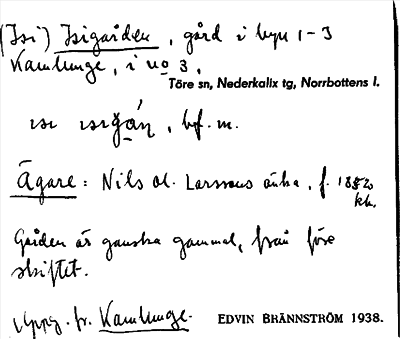 (Isi) Isigården, gård i byn 1-3
Kamlunge, i no 3.
Töre sn, Nederkalix tg, Norrbottens l.
bf. m.
Ägare: Nils Ol. Larssons änka, f. 1852
kh.
Gården är ganska gammal, från före
skiftet.
Uppg. fr. Kamlunge.
EDVIN BRÄNNSTRÖM 1938.